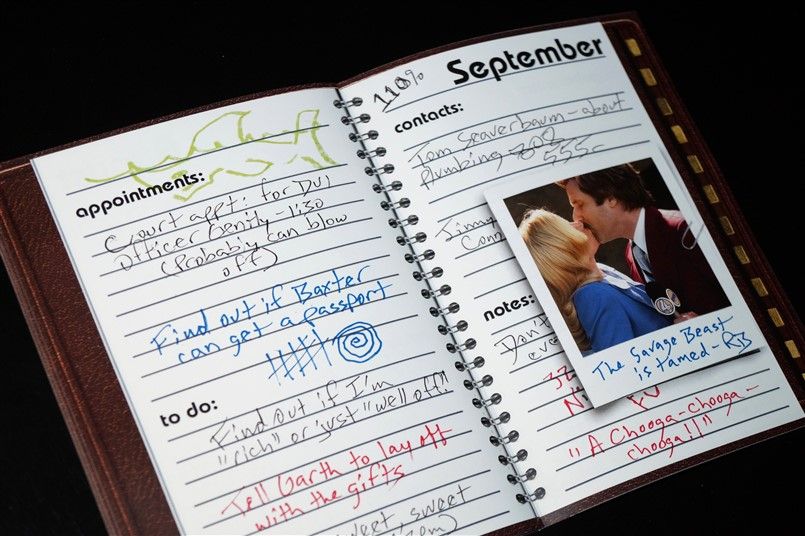 appointments:
Court appt: for DUI
Officer Genily - 1:30
(Probably can blow
off)
Find out if Baxter
can get a passport
to do:
Find out if I'm
"rich" or just "well off."
Tell Garth to lay off
with the gifts
sweet, sweet
110%
September
contacts:
Tom Seaverbaum - about
Plumbing
Jimmy
notes:
The Savage Beast
is tamed - RB
"A Chooga-chooga-
chooga!!"